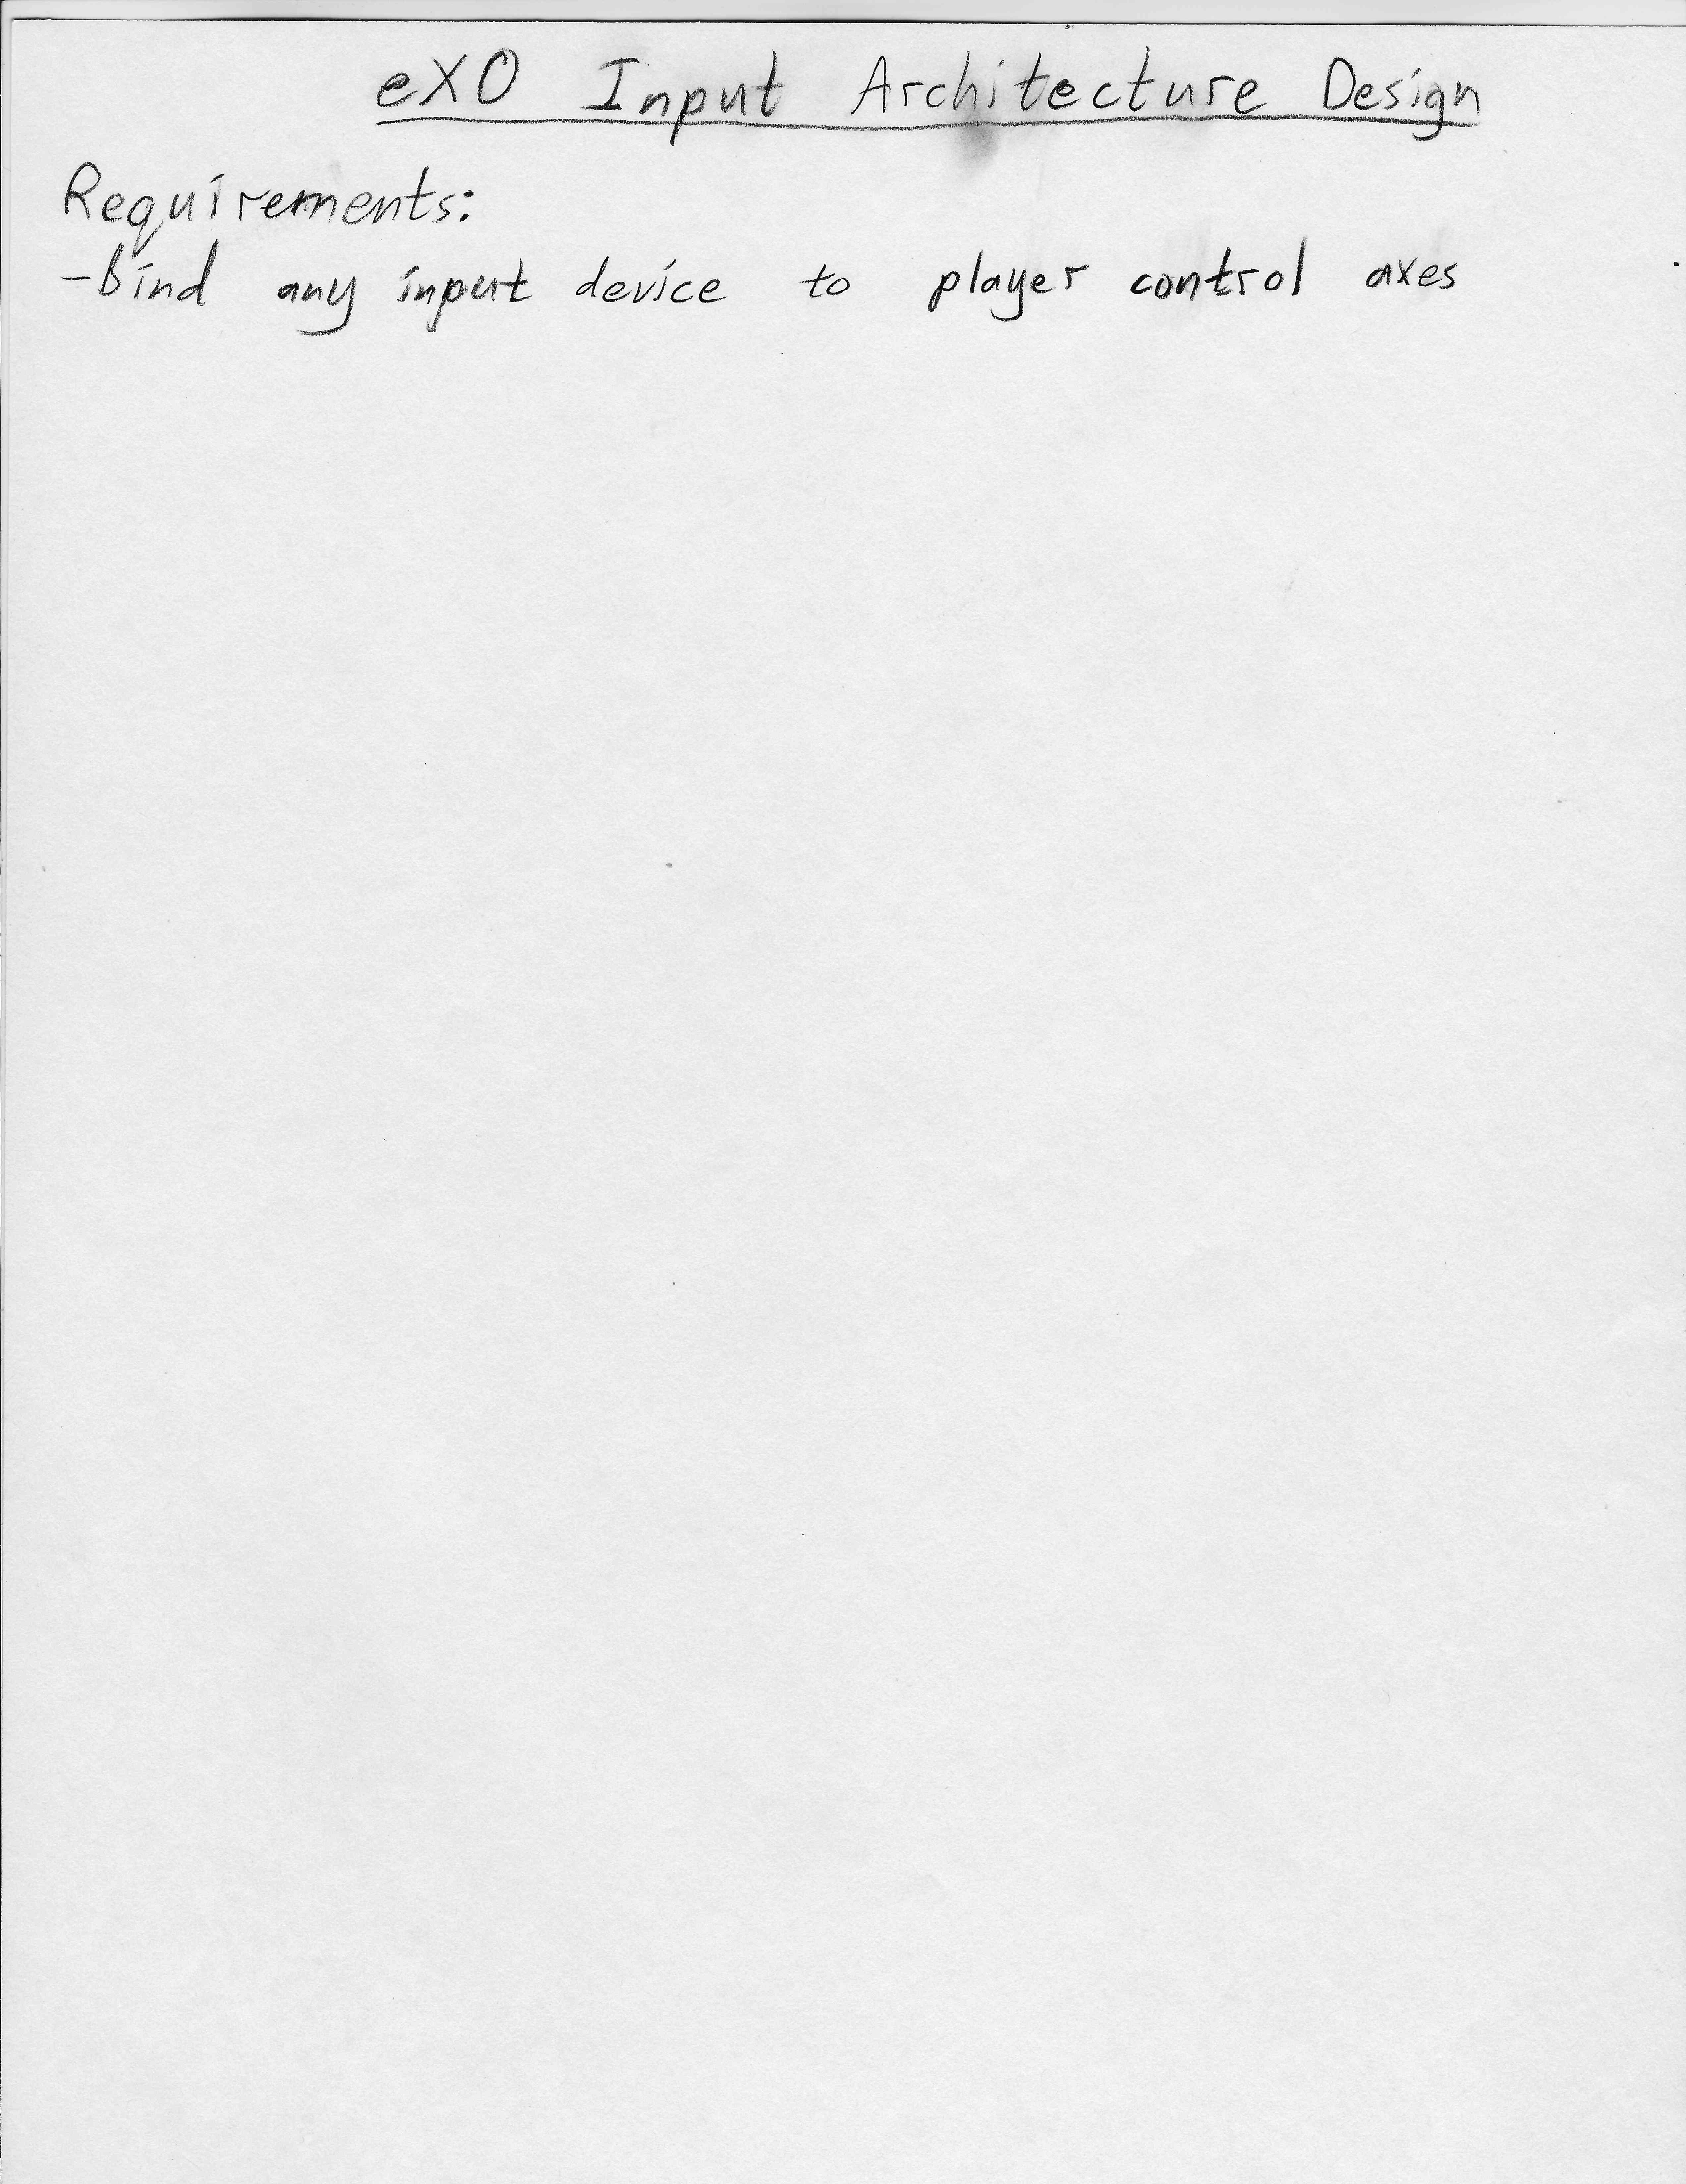 eXO Input Architecture Design
Requirements:
-bind any input device to player control axes